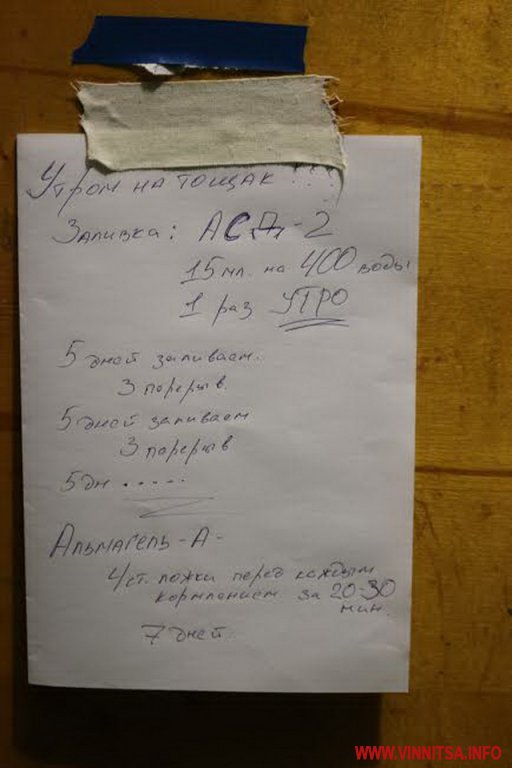 Утром на тощак !!!
Заливка: АСД-2
15 мл. на 400 воды
1 раз УТРО
5 дней заливаем.
3 перерыв.
5 дней заливаем
3 перерыв
5 дн .....
Альмагель-А-
4 ст. ложки перед каждым
кормлением за 20-30
мин.
7 дней.
WWW.VINNITSA.INFO